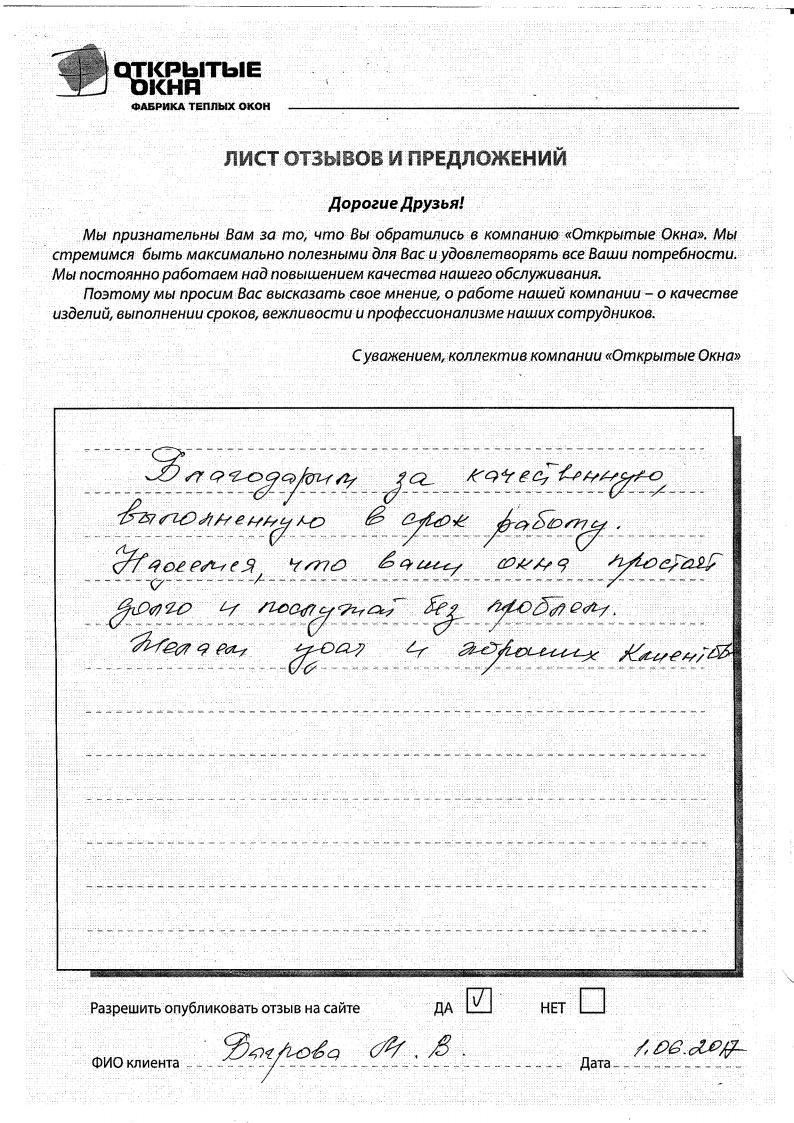 ОТКРЫТЫЕ
ОКНА
ФАБРИКА ТЕПЛЫХ ОКОН
ЛИСТ ОТЗЫВОВ И ПРЕДЛОЖЕНИЙ
Дорогие Друзья!
Мы признательны Вам за то, что Вы обратились в компанию «Открытые Окна». Мы
стремимся быть максимально полезными для Вас и удовлетворять все Ваши потребности.
Мы постоянно работаем над повышением качества нашего обслуживания.
Поэтому мы просим Вас высказать свое мнение, о работе нашей компании – о качестве
изделий, выполнении сроков, вежливости и профессионализме наших сотрудников.
С уважением, коллектив компании «Открытые Окна»
Благодарим за качественную,
выполненную в срок работу.
Надеемся, что ваши окна простоят
долго и послужат без проблем.
Желаем удач и хороших клиентов
Разрешить опубликовать отзыв на сайте ДА НЕТ
ФИО клиента М. В. Дата 1.06.2017